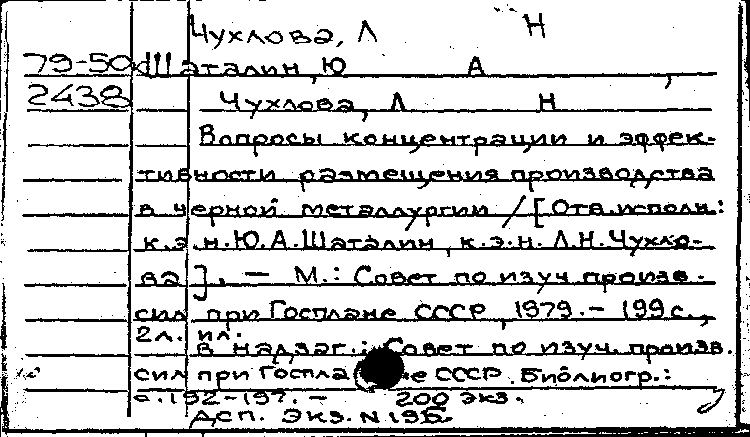 Чухлова, Л Н
79-50 Шаталин, Ю А ,
2438 Чухлова, Л Н
Вопросы концентрации и эффек-
тивности размещения производства
в черной металлургии / [Отв. исполн.:
к.э.н. Ю.А. Шаталин, к.э.н. Л.Н. Чухло-
ва]. — М.: Совет по изуч. произв.
сил при Госплане СССР, 1979. - 199 с.,
2 л. ил.
В надзаг.: Совет по изуч. произв.
сил при Госплане СССР. Библиогр.:
с. 192-197. - 200 экз.
ДСП. Экз. N 195